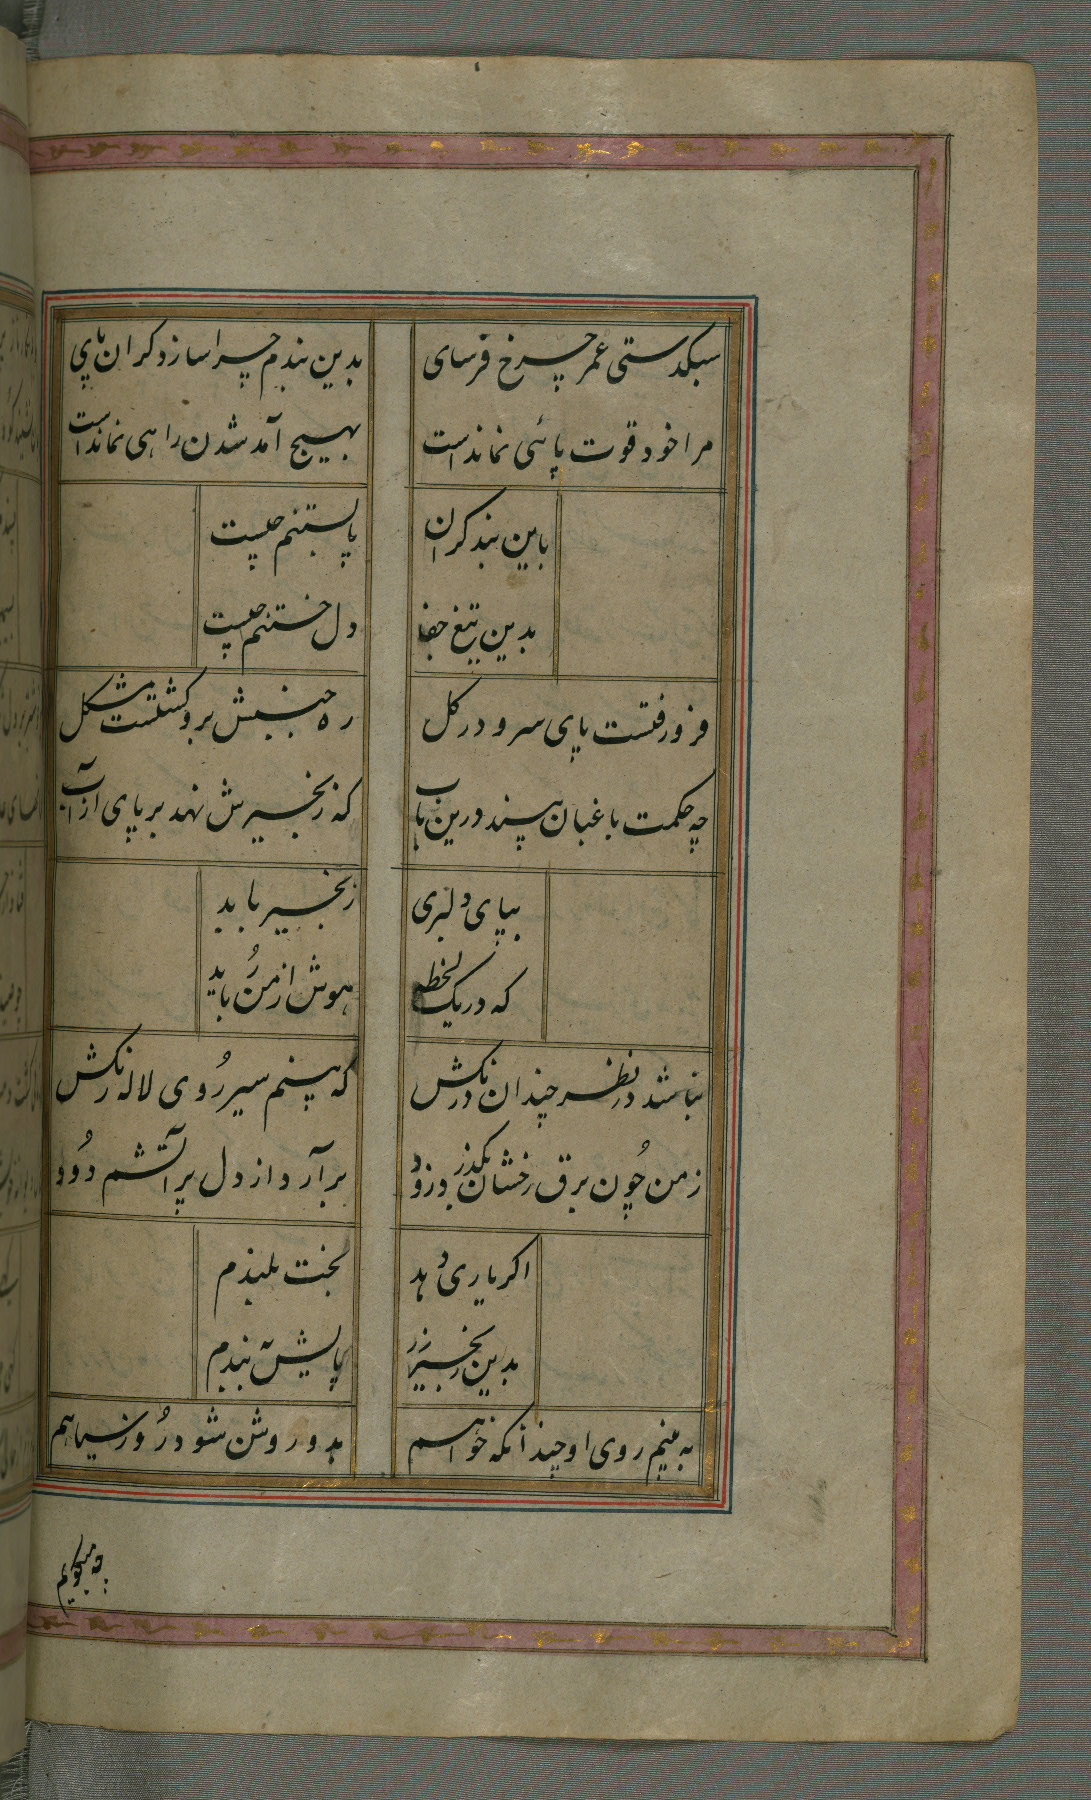 سبکدستی عمر چرخ فرسای بدین بندم چرا سازد کران پای
مرا خود قوت پائی نماندست بهیچ آمد شدن راهی نماندست
باین بند کران پا بستنم چیست
بدین تیغ جفا دل خستنم چیست
فرو رفتست پای سرو در کل ره جنبش برو کشتست مشکل
چه حکمت باغبان بیند درین باب که زنجیرش نهد بر پای از آب
بپای دلبری زنجیر باید
که در یک لحظه هوش از من رُباید
نباشد در نظر چندان درنکش که بینم سیر رُوی لاله رنکش
ز من چُون برق رخشان بکذرد زود بر آرد از دل پر آتشم دُود
اکر یاری دهد بخت بلندم
بدین زنجیر زر پایش به بندم
به بینم روی او چندانکه خواهم بدو روشن شود رُوز سیاهم
چه میکویم